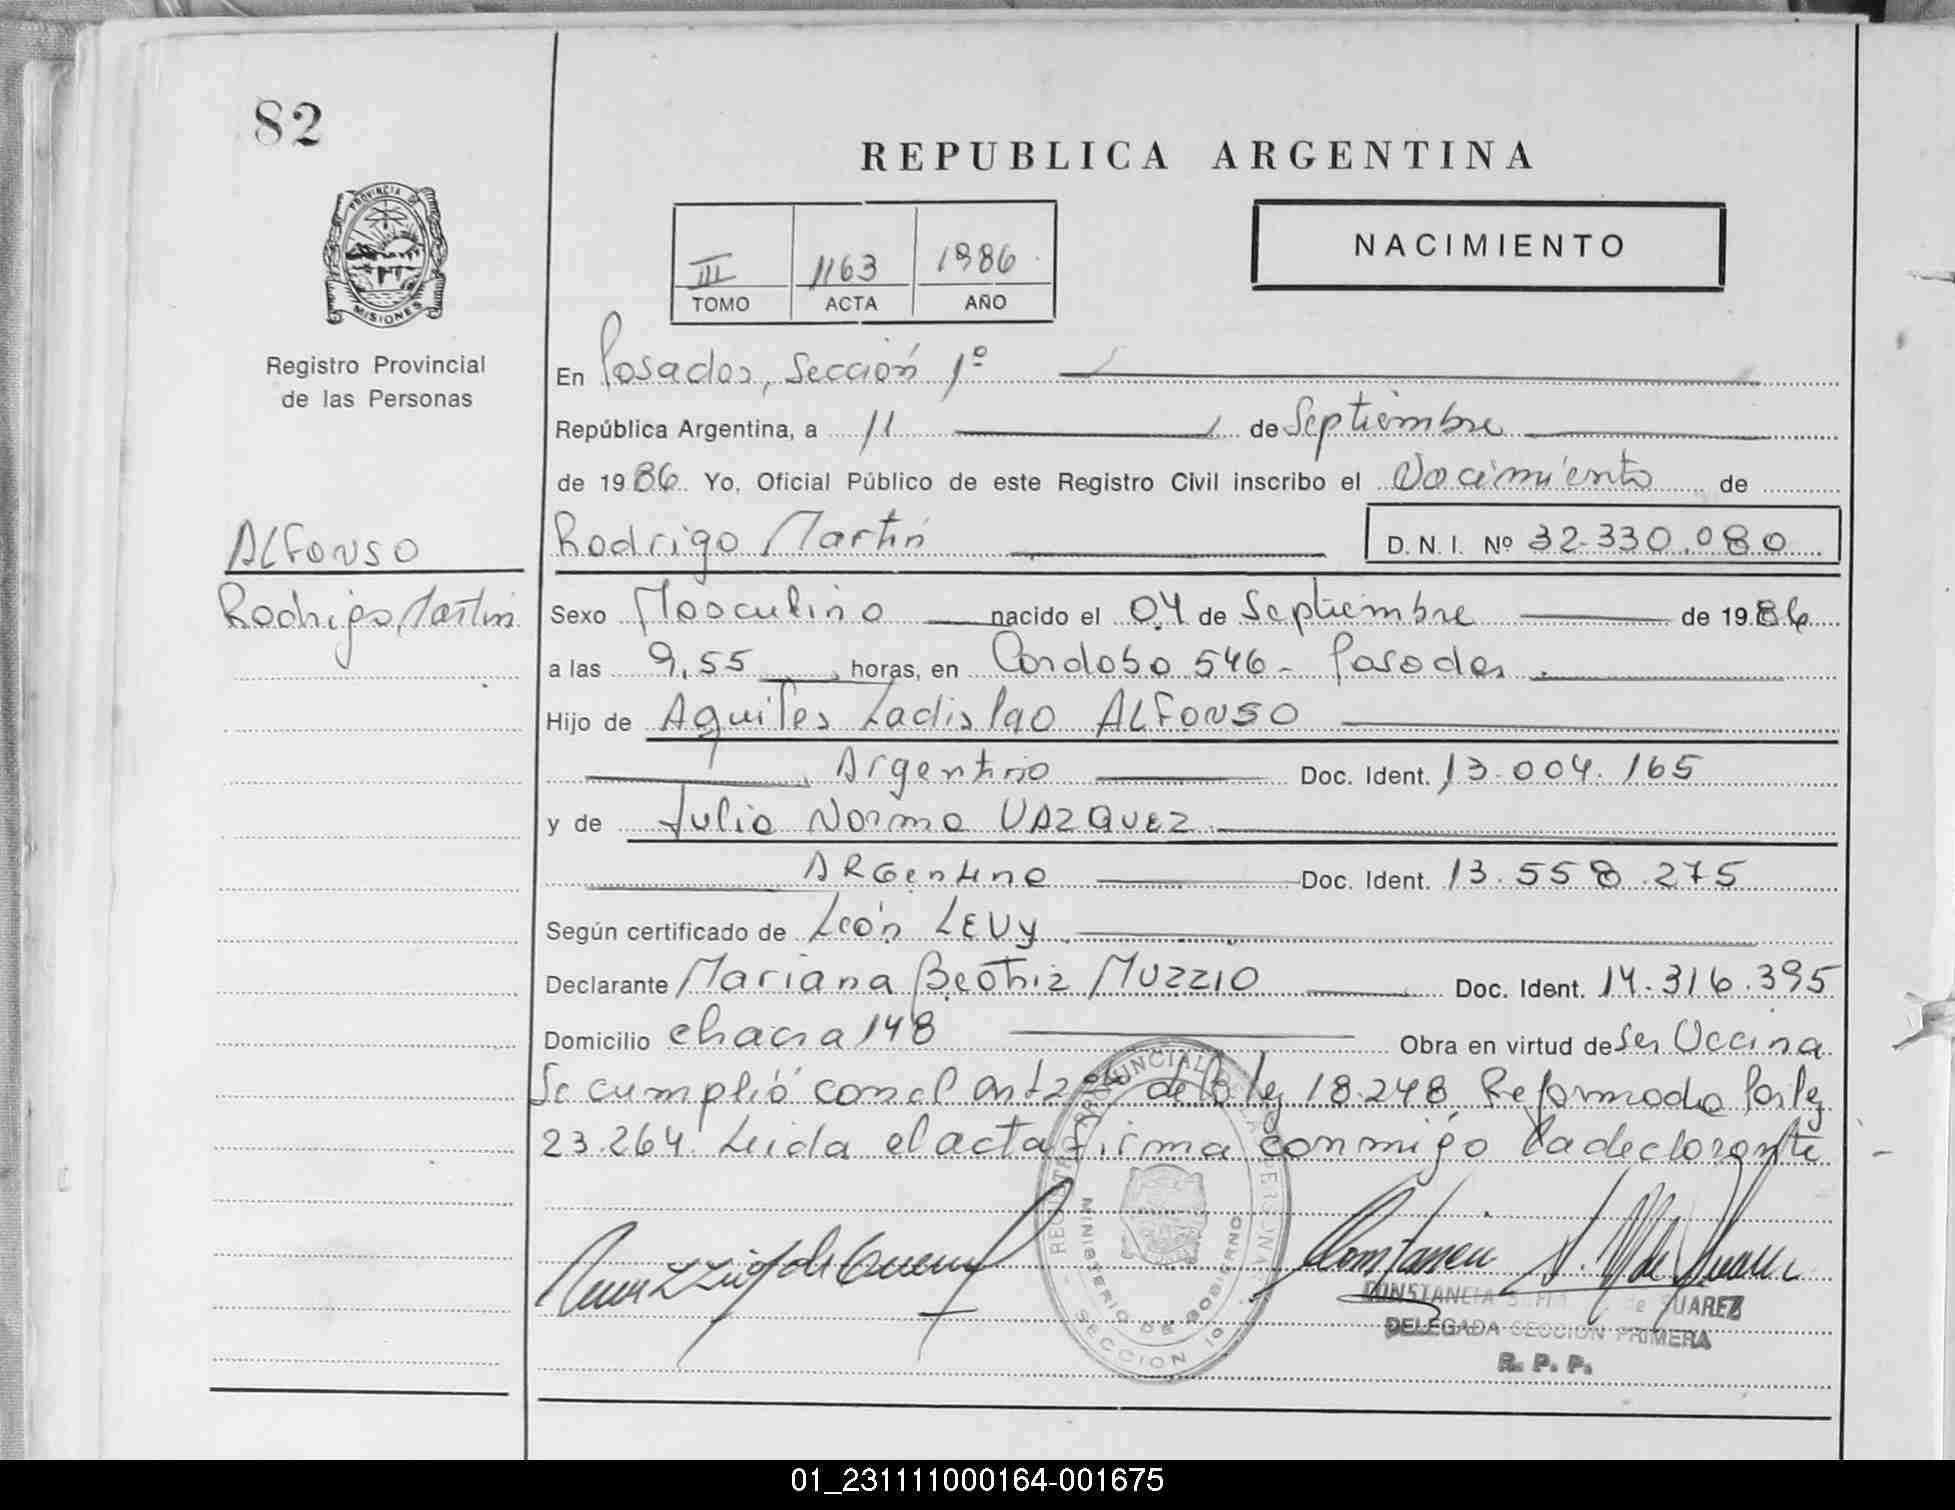 82
REPUBLICA ARGENTINA
PROVINCIA DE
MISIONES
Registro Provincial
de las Personas
III 1163 1986
TOMO ACTA AÑO
NACIMIENTO
En Posadas, Sección 1º
República Argentina, a 11 de Septiembre
de 1986. Yo, Oficial Público de este Registro Civil inscribo el Nacimiento de
Rodrigo Martín D. N. I. Nº 32.330.080
ALFONSO
Rodrigo Martín
Sexo Masculino nacido el 04 de Septiembre de 1986
a las 9,55 horas, en Cordoba 546 - Posadas.
Hijo de Aquiles Ladislao ALFONSO
Argentino Doc. Ident. 13.004.165
y de Julia Norma VAZQUEZ
Argentina Doc. Ident. 13.558.275
Según certificado de León LEVY
Declarante Mariana Beatriz MUZZIO Doc. Ident. 14.316.395
Domicilio chacra 148 Obra en virtud de ser Vecina
Se cumplió con el art 2º de la ley 18.248 Reformada por ley
23.264. Leida el acta firma conmigo la declarante
MINISTERIO DE GOBIERNO
SECCION 1º
CONSTANCIA de SUAREZ
DELEGADA SECCION PRIMERA
R. P. P.
01_231111000164-001675